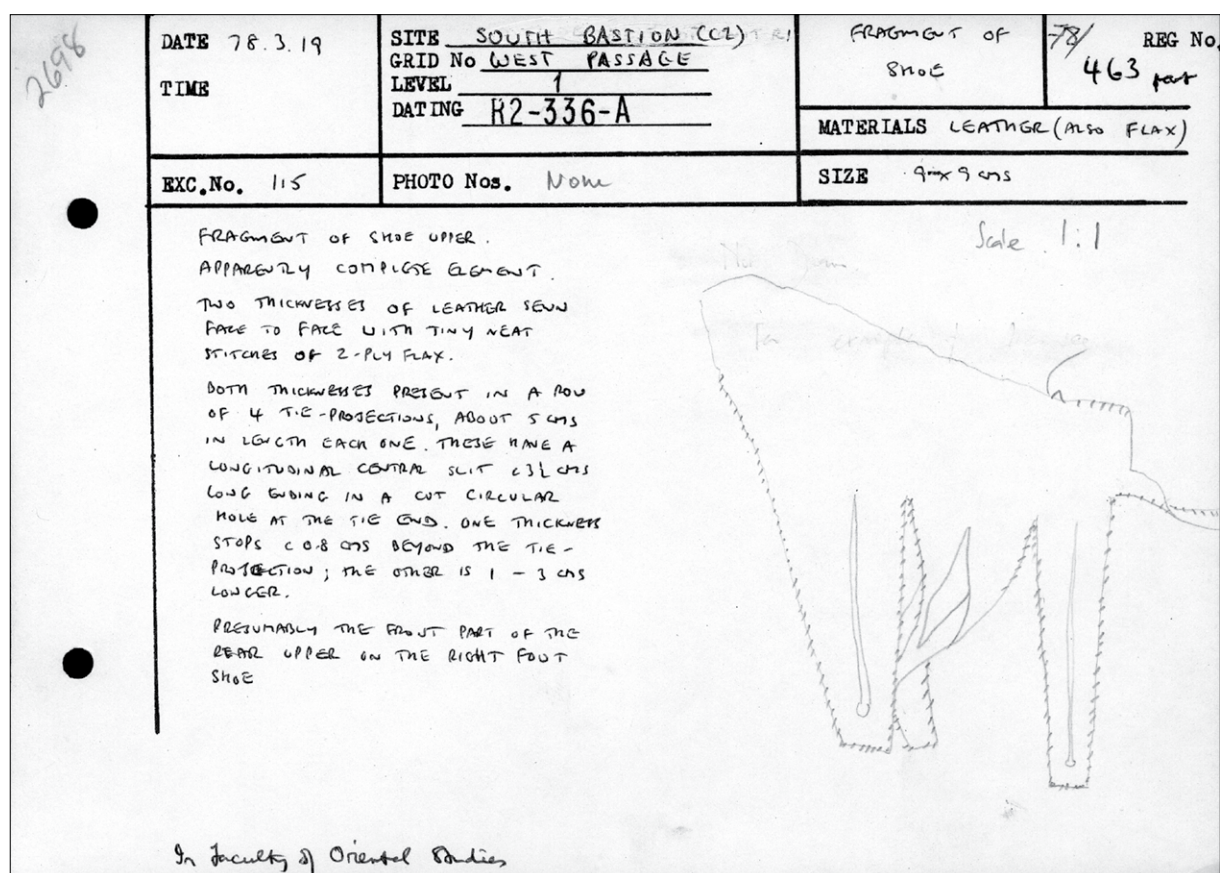 2698
DATE 78.3.19
TIME
SITE SOUTH BASTION (C2)
GRID No WEST PASSAGE
LEVEL 1
DATING R2-336-A
FRAGMENT OF
SHOE
78/ REG No.
463 part
MATERIALS LEATHER (ALSO FLAX)
EXC.No. 115
PHOTO Nos. None
SIZE 9 x 9 cms
Scale 1:1
FRAGMENT OF SHOE UPPER.
APPARENTLY COMPLETE ELEMENT.
TWO THICKNESSES OF LEATHER SEWN
FACE TO FACE WITH TINY NEAT
STITCHES OF 2-PLY FLAX.
BOTH THICKNESSES PRESENT IN A ROW
OF 4 TIE-PROJECTIONS, ABOUT 5 CMS
IN LENGTH EACH ONE. THESE HAVE A
LONGITUDINAL CENTRAL SLIT c3½ CMS
LONG ENDING IN A CUT CIRCULAR
HOLE AT THE TIE END. ONE THICKNESS
STOPS c 0.8 CMS BEYOND THE TIE-
PROJECTION; THE OTHER IS 1 - 3 CMS
LONGER.
PRESUMABLY THE FRONT PART OF THE
REAR UPPER ON THE RIGHT FOOT
SHOE
In Faculty of Oriental Studies